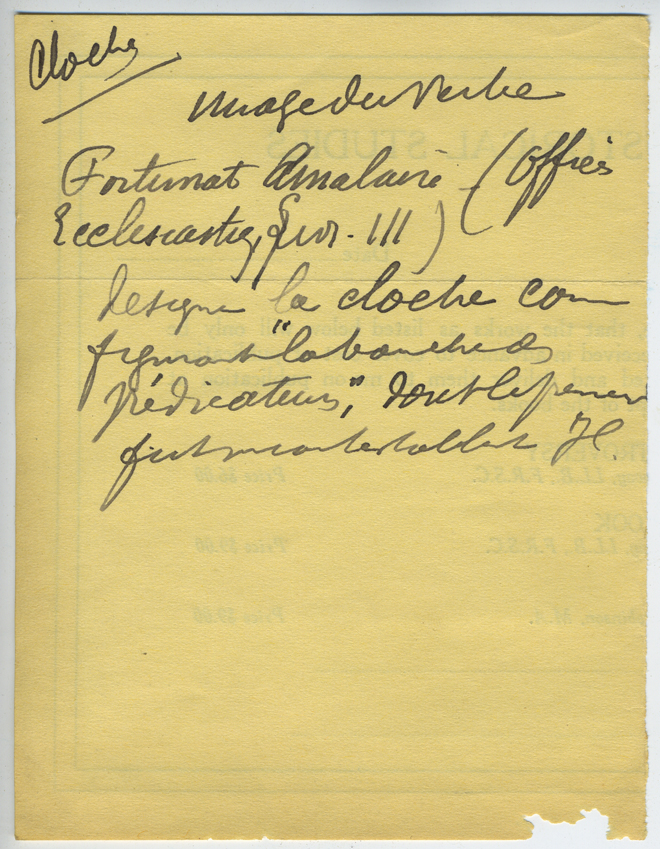 Cloche
Image du Verbe
Fortunat Amalaire - (Offices
Ecclesiastiq, Livr. III)
désigne la cloche com
figurant "la bouche des
prédicateurs", dont le premier
fut incontestablemt J.C.